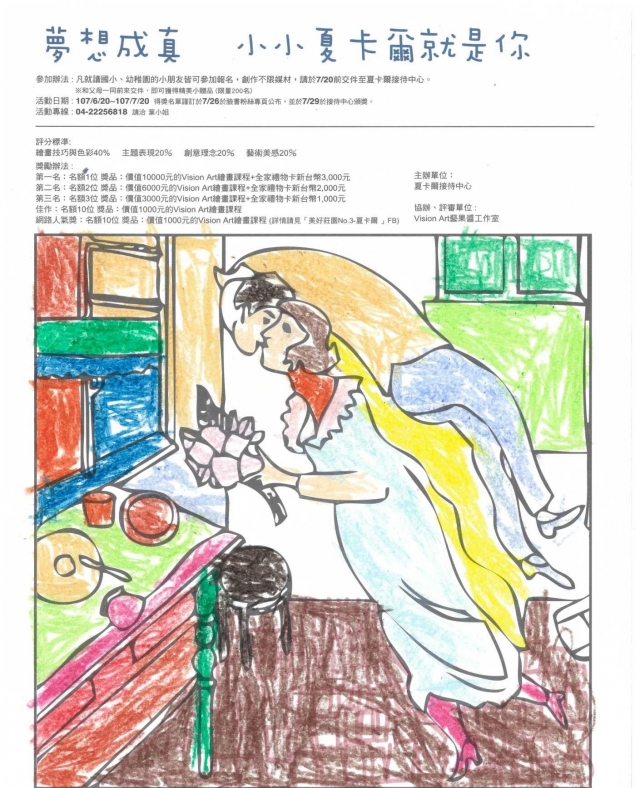 夢想成真 小小夏卡爾就是你
參加辦法：凡就讀國小、幼稚園的小朋友皆可參加報名，創作不限媒材，請於7/20前交件至夏卡爾接待中心。
※和父母一同前來交件，即可獲得精美小贈品 (限量200名)
活動日期：107/6/20~107/7/20 得獎名單謹訂於7/26於臉書粉絲專頁公布，並於7/29於接待中心頒獎。
活動專線：04-22256818 請洽 葉小姐
評分標準:
繪畫技巧與色彩40% 主題表現20% 創意理念20% 藝術美感20%
獎勵辦法：
第一名：名額1位 獎品：價值10000元的Vision Art繪畫課程+全家禮物卡新台幣3,000元
第二名：名額2位 獎品：價值6000元的Vision Art繪畫課程+全家禮物卡新台幣2,000元
第三名：名額3位 獎品：價值3000元的Vision Art繪畫課程+全家禮物卡新台幣1,000元
佳作：名額10位 獎品：價值1000元的Vision Art繪畫課程
網路人氣獎：名額10位 獎品：價值1000元的Vision Art繪畫課程 (詳情請見「美好莊園No.3-夏卡爾 」FB)
主辦單位：
夏卡爾接待中心
協辦、評審單位：
Vision Art藝果醬工作室